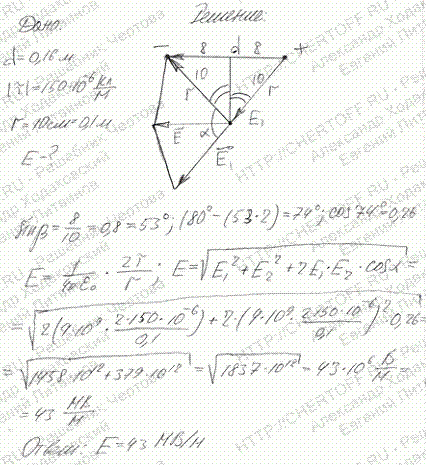 Дано:
Решение:
d = 0,16 м
|τ| = 150·10⁻⁶ Кл/м
r = 10 см = 0,1 м
E - ?
− 8 d 8 +
10 10
r r
E₁
E α
E₁
sin β = 8/10 = 0,8 = 53°; (180° − (53·2) = 74°; cos 74° = 0,26
E = 1/4πε₀ · 2τ/r; E = √E₁² + E₂² + 2E₁·E₂·cos α =
= √2(9·10⁹ · 2·150·10⁻⁶/0,1) + 2·(9·10⁹ · 2·150·10⁻⁶/0,1)² 0,26 =
= √1458·10¹² + 379·10¹² = √1837·10¹² = 43·10⁶ В/м =
= 43 МВ/м
Ответ: E = 43 МВ/м
HTTP://CHERTOFF.RU
Решебник Чертова
Александр Ходаковский
Евгений Литвинов